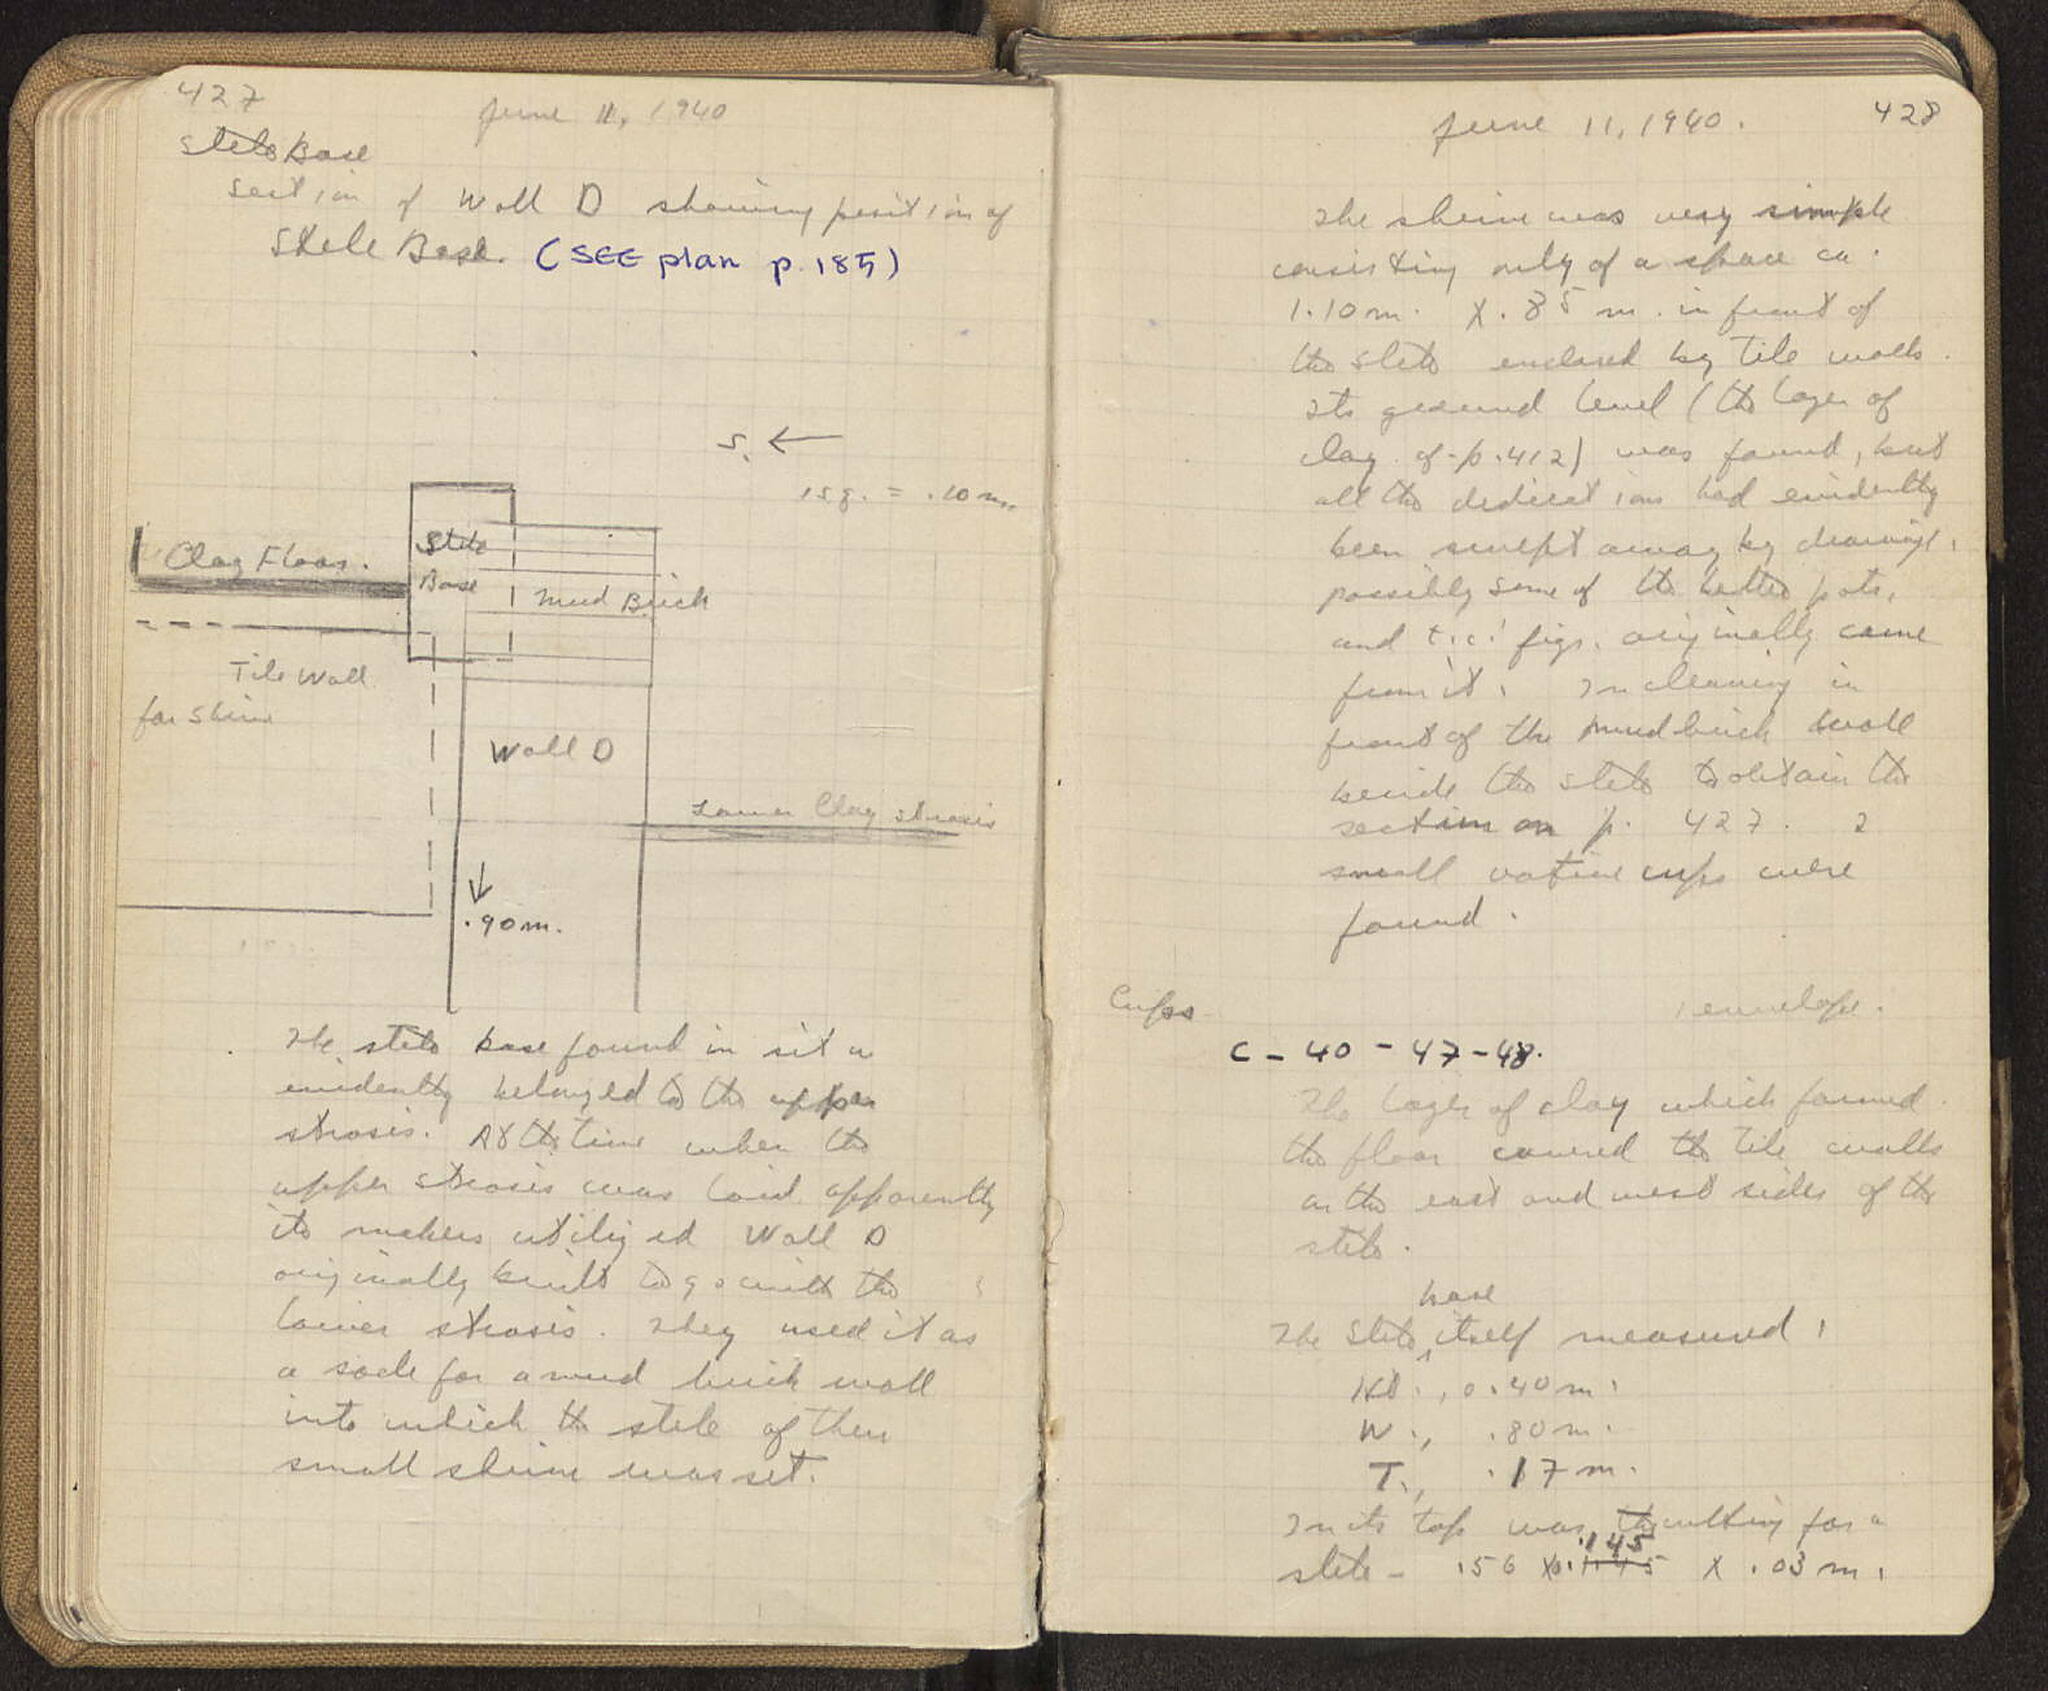 427
June 11, 1940
Stele Base
Section of Wall D showing position of
Stele Base. (SEE plan p. 185)
S. ←
1 sq. = .10 m.
Clay Floor.
Stele
Base
Mud Brick
Tile Wall
for Shrine
Wall D
Lower Clay strosis
.90 m.
The stele base found in situ
evidently belonged to the upper
strosis. At the time when the
upper strosis was laid apparently
its makers utilized Wall D
originally built to go with the
lower strosis. They used it as
a socle for a mud brick wall
into which the stele of their
small shrine was set.
June 11, 1940.
428
The shrine was very simple
consisting only of a space ca.
1.10 m. x .85 m. in front of
the stele enclosed by tile walls.
Its ground level (the layer of
clay cf. p. 412) was found, but
all the dedications had evidently
been swept away by drainage,
possibly some of the better pots,
and t.c. figs. originally came
from it. In cleaning in
front of the mud brick wall
beside the stele to obtain the
section on p. 427. 2
small votive cups were
found.
Cups
1 envelope.
C - 40 - 47 - 48.
The layer of clay which formed
the floor covered the tile walls
on the east and west sides of the
stele.
base
The Stele itself measured,
Ht., 0.40 m.
W., .80 m.
T., .17 m.
In its top was the cutting for a
.145
stele - .56 x 0.1145 x .03 m.